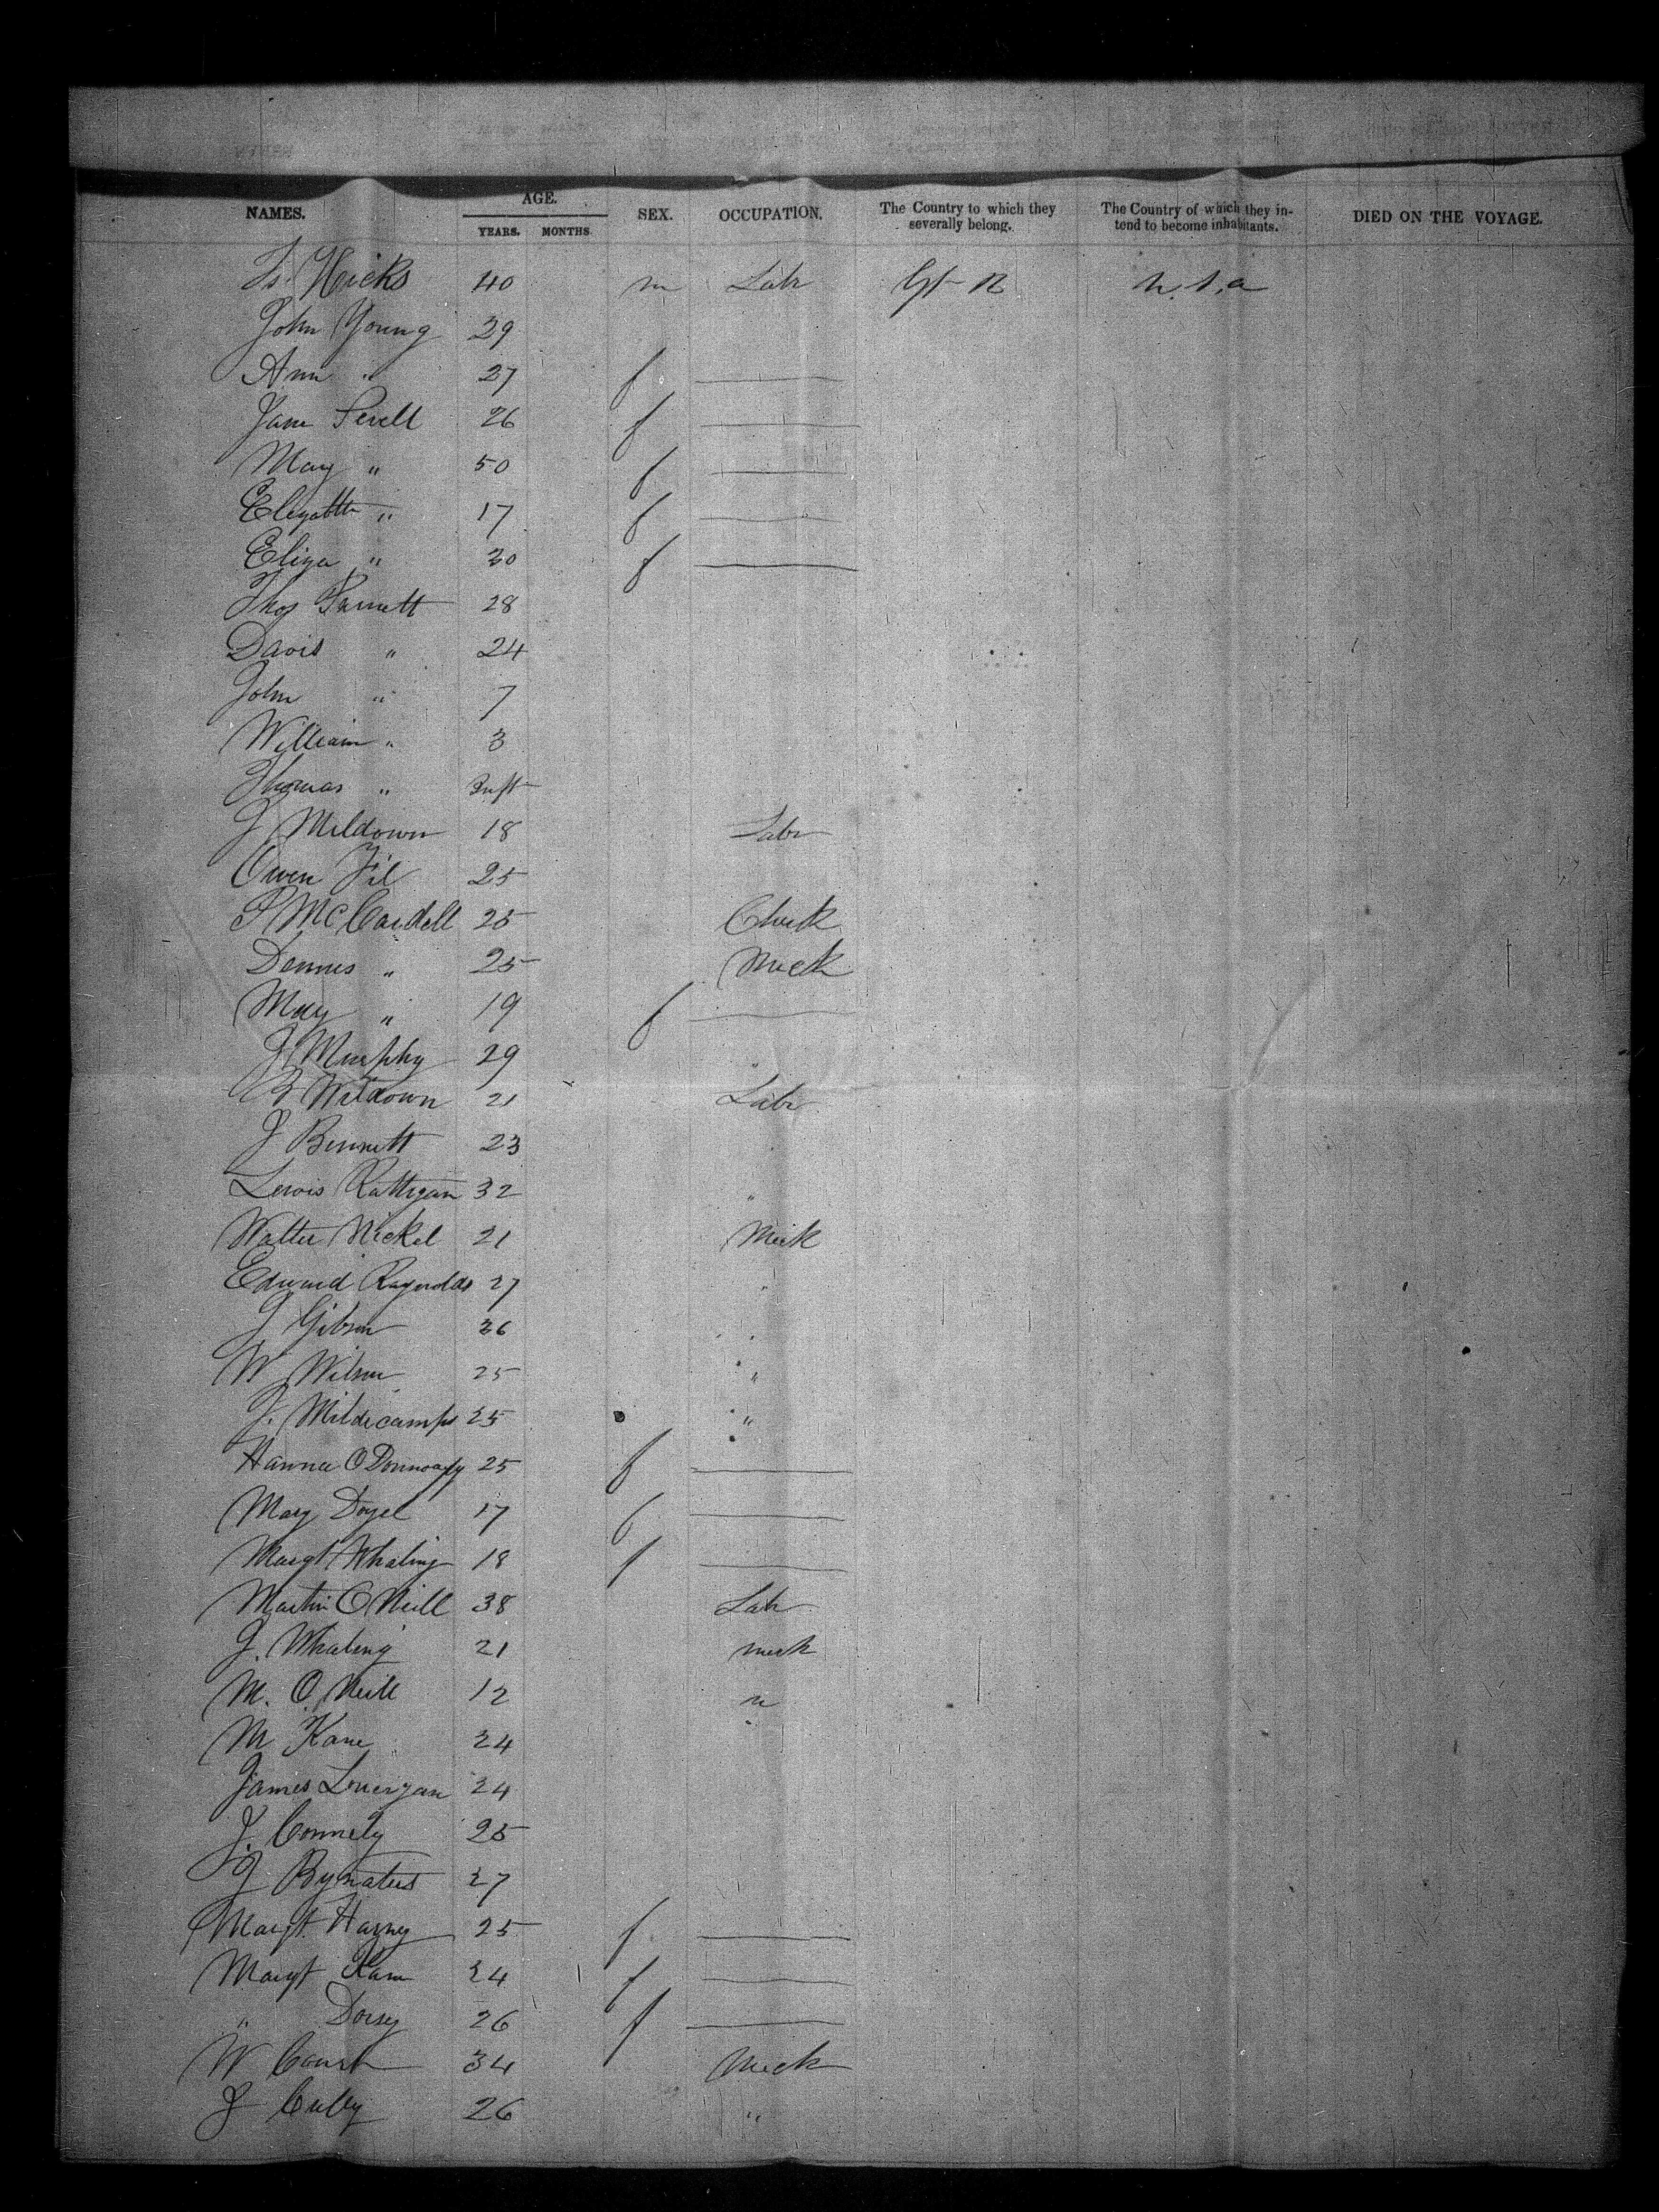 NAMES. AGE. SEX. OCCUPATION. The Country to which they severally belong. The Country of which they intend to become inhabitants. DIED ON THE VOYAGE.
YEARS. MONTHS
Hicks 40 m Labr Gt B U.S.a
John Young 29
Ann " 27 f
Jane Sevell 26 f
Mary " 50 f
" 17 f
Eliza " 30 f
Thos 28
David " 24
John " 7
William " 3
Thomas " Inft
J Muldown 18 Labr
Owen 25
P McCardell 25 Clerk
Dennis " 25 Mech
Mary " 19 f
J Murphy 29 "
21 Labr
J Bennett 23
Lewis Rattigan 32 "
Walter Nickel 21 Mech
Edward Raynolds 27 "
J Gibson 36 "
W Wilson 25 "
J. 25 "
Hanna 25 f
Mary Doyel 17 f
Margt Whaling 18 f
Martin O Neill 38 Labr
J. Whaling 21 mech
M. O Neill 12 "
M Kane 24
James Lonergan 24
J. Connely 25
J 27
Margt. Harney 25 f
Margt Kane 24 f
" Dorsey 26 f
W 34 Mech
J Cully 26 "